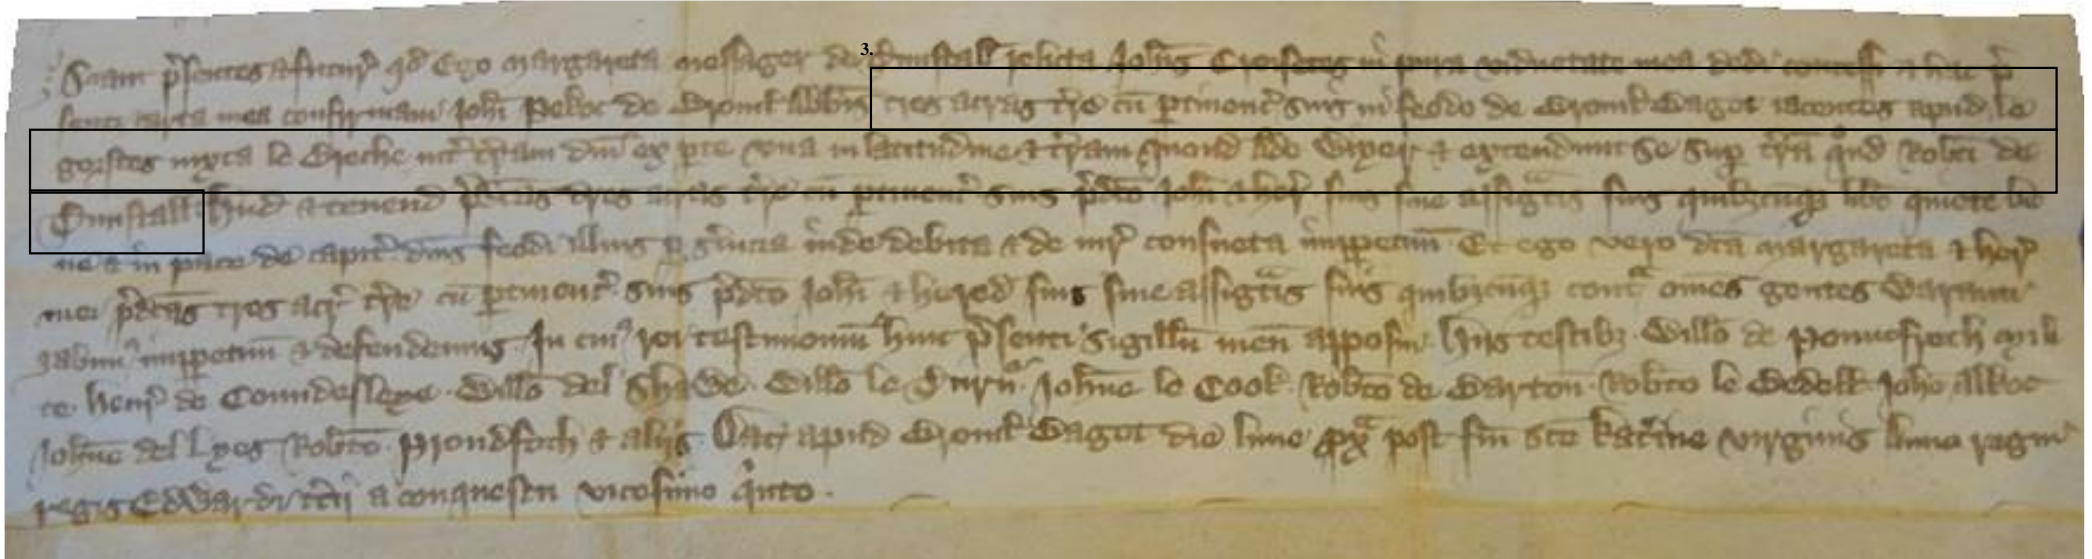 Sciant p̄sentes & futur̄ qd̄ Ego Margareta Messager de Dunstall̄ relicta Joh̄is Croysetes in pura viduetate mea dedi concessi & hac p̄
3.
senti carta mea confirmavi Joh̄i de Bromł Abb̄is tres acras tr̄e cū ptinenc̄ suis in feodo de Bromł Bagot iacentes apud le
gorstes iuxta le Broche int̄ tr̄am dn̄i ex pte una in latitudine & tr̄am quond̄ Ade & extendunt se sup tr̄ā qnd̄ Rob̄ti de
Dunstall hn̄d & tenend p̄dc̄as tres acras tr̄e cū ptinenc̄ suis p̄dc̄o Joh̄i & her̄ suis sive assignatis suis quibuscunq; lib̄e quiete be
ne & in pace de capit̄ dn̄is feodi illius p s̄vicia inde debita & de iur̄ consueta imppetuū Et ego vero dc̄a Margareta & her̄
mei p̄dc̄as tres acr̄ tr̄e cū ptinenc̄ suis p̄dc̄o Joh̄i & hered̄ suis sive assignatis suis quibuscunq; contᵃ om̄es gentes Waranti
zabim⁹ imppetuū & defendemus In cui⁹ rei testimoniū huic p̄senti sigillū meū apposui Hiis testib; Will̄o de Pountfreth mili
te Henr̄ de Coundesleye Will̄o del Shawe Will̄o le Joh̄ne le Cook Rob̄to de Barton Rob̄to le Bedell Joh̄e Alkoc
Joh̄ne del Lyes Rob̄to Proudfoth & aliis Dat̄ apud Bromł Bagot die lune px̄ post fm̄ Sc̄e Kat̄ine virginis Anno regni
regis Edwardi t̄cii a conquestu vicesimo q̄nto